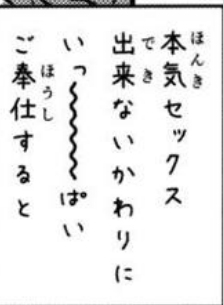 本気セックス
出来ないかわりに
いっ〜〜〜〜ぱい
ご奉仕すると